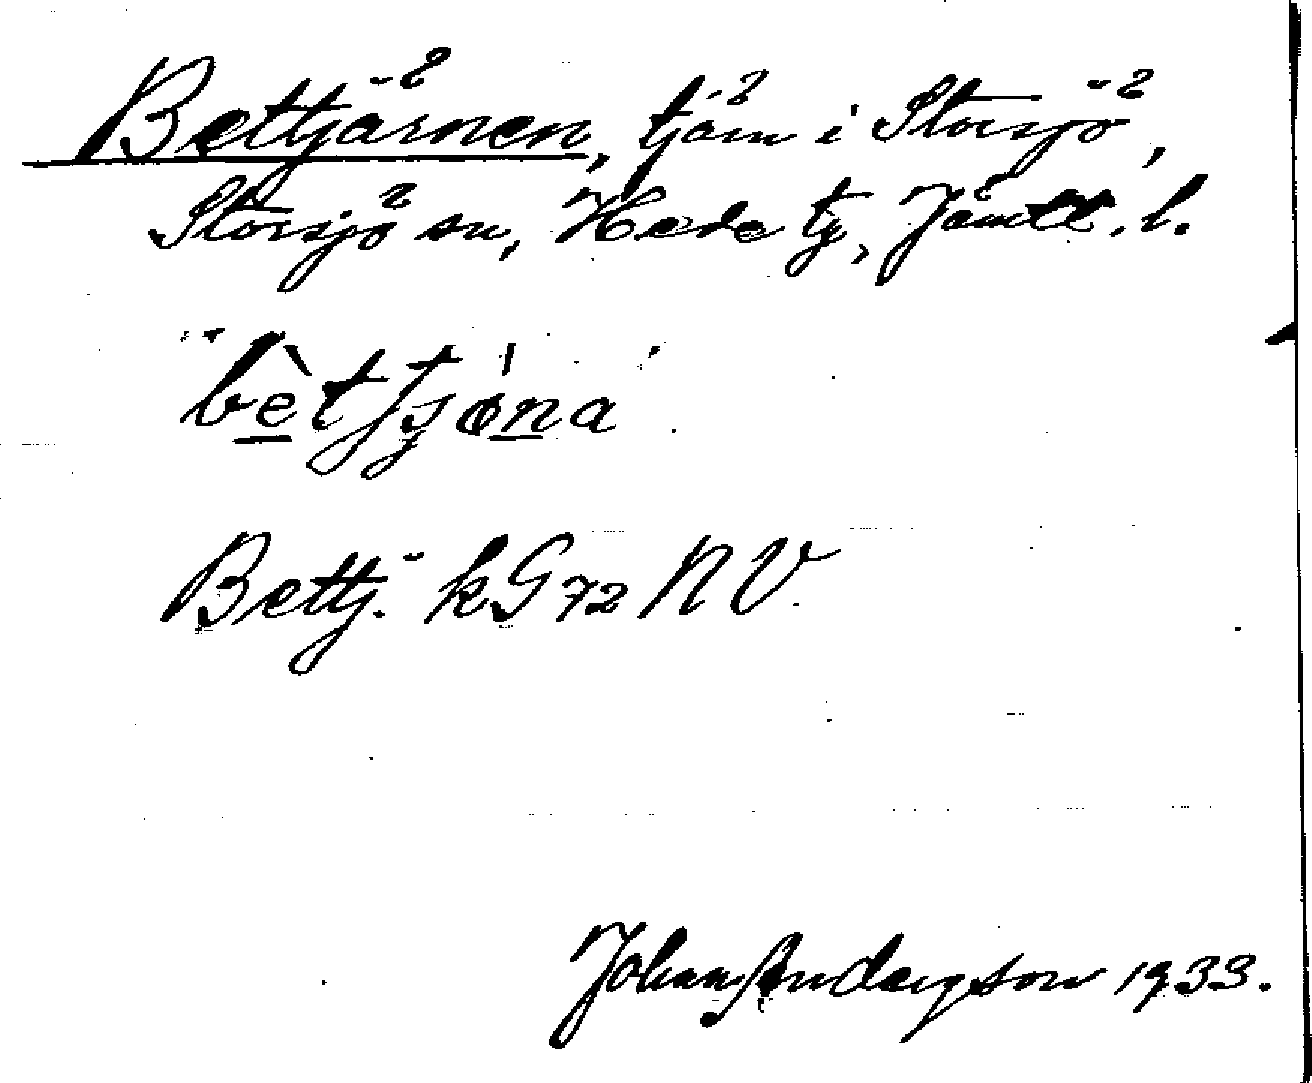 Bettjärnen, tjärn i Storsjö,
Storsjö sn, Hede tg, Jämtl. l.
bèttjø̀na
Bettj. kG72 NV.
Johan Andersson 1933.